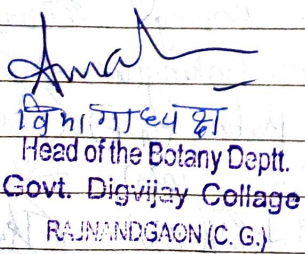 विभागाध्यक्ष
Head of the Botany Deptt.
Govt. Digvijay Collage
RAJNANDGAON (C. G.)